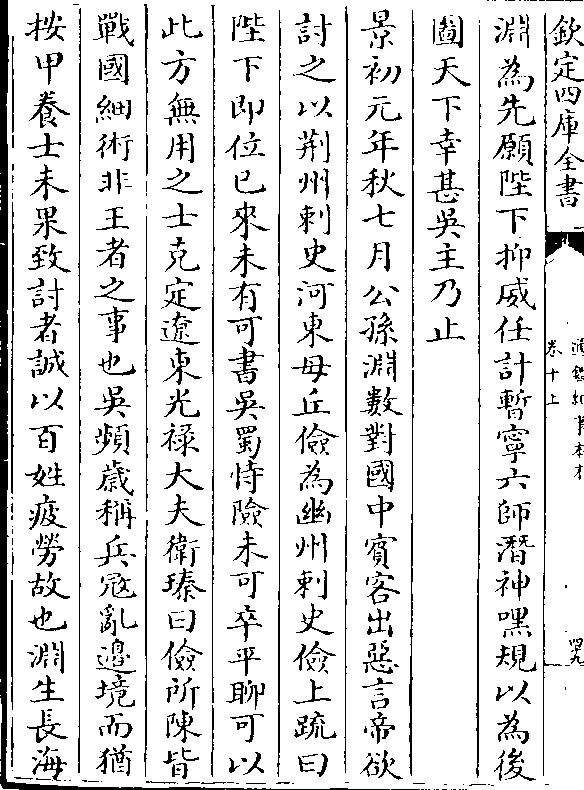 欽定四庫全書
通鑑紀事本末
卷十上
四九
淵為先願陛下抑威任計暫寧六師潛神嘿規以為後
圖天下幸甚吳主乃止
景初元年秋七月公孫淵數對國中賓客出惡言帝欲
討之以荆州刺史河東毋丘儉為幽州刺史儉上疏曰
陛下即位已來未有可書吳蜀恃險未可卒平聊可以
此方無用之士克定遼東光祿大夫衛瑧曰儉所陳皆
戰國細術非王者之事也吳頻歲稱兵寇亂邊境而猶
按甲養士未果致討者誠以百姓疲勞故也淵生長海